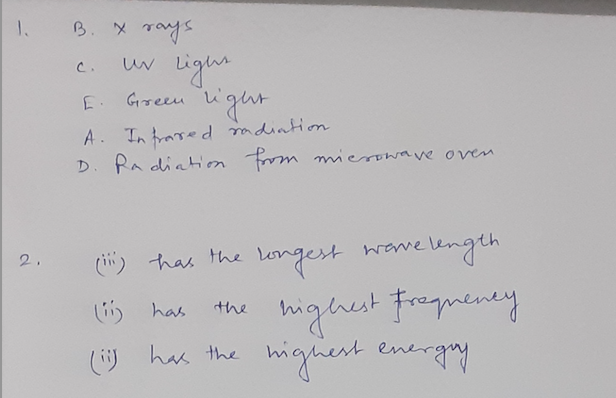 1. B. X rays
C. UV Light
E. Green light
A. Infrared radiation
D. Radiation from microwave oven
2. (iii) has the longest wavelength
(ii) has the highest frequency
(ii) has the highest energy